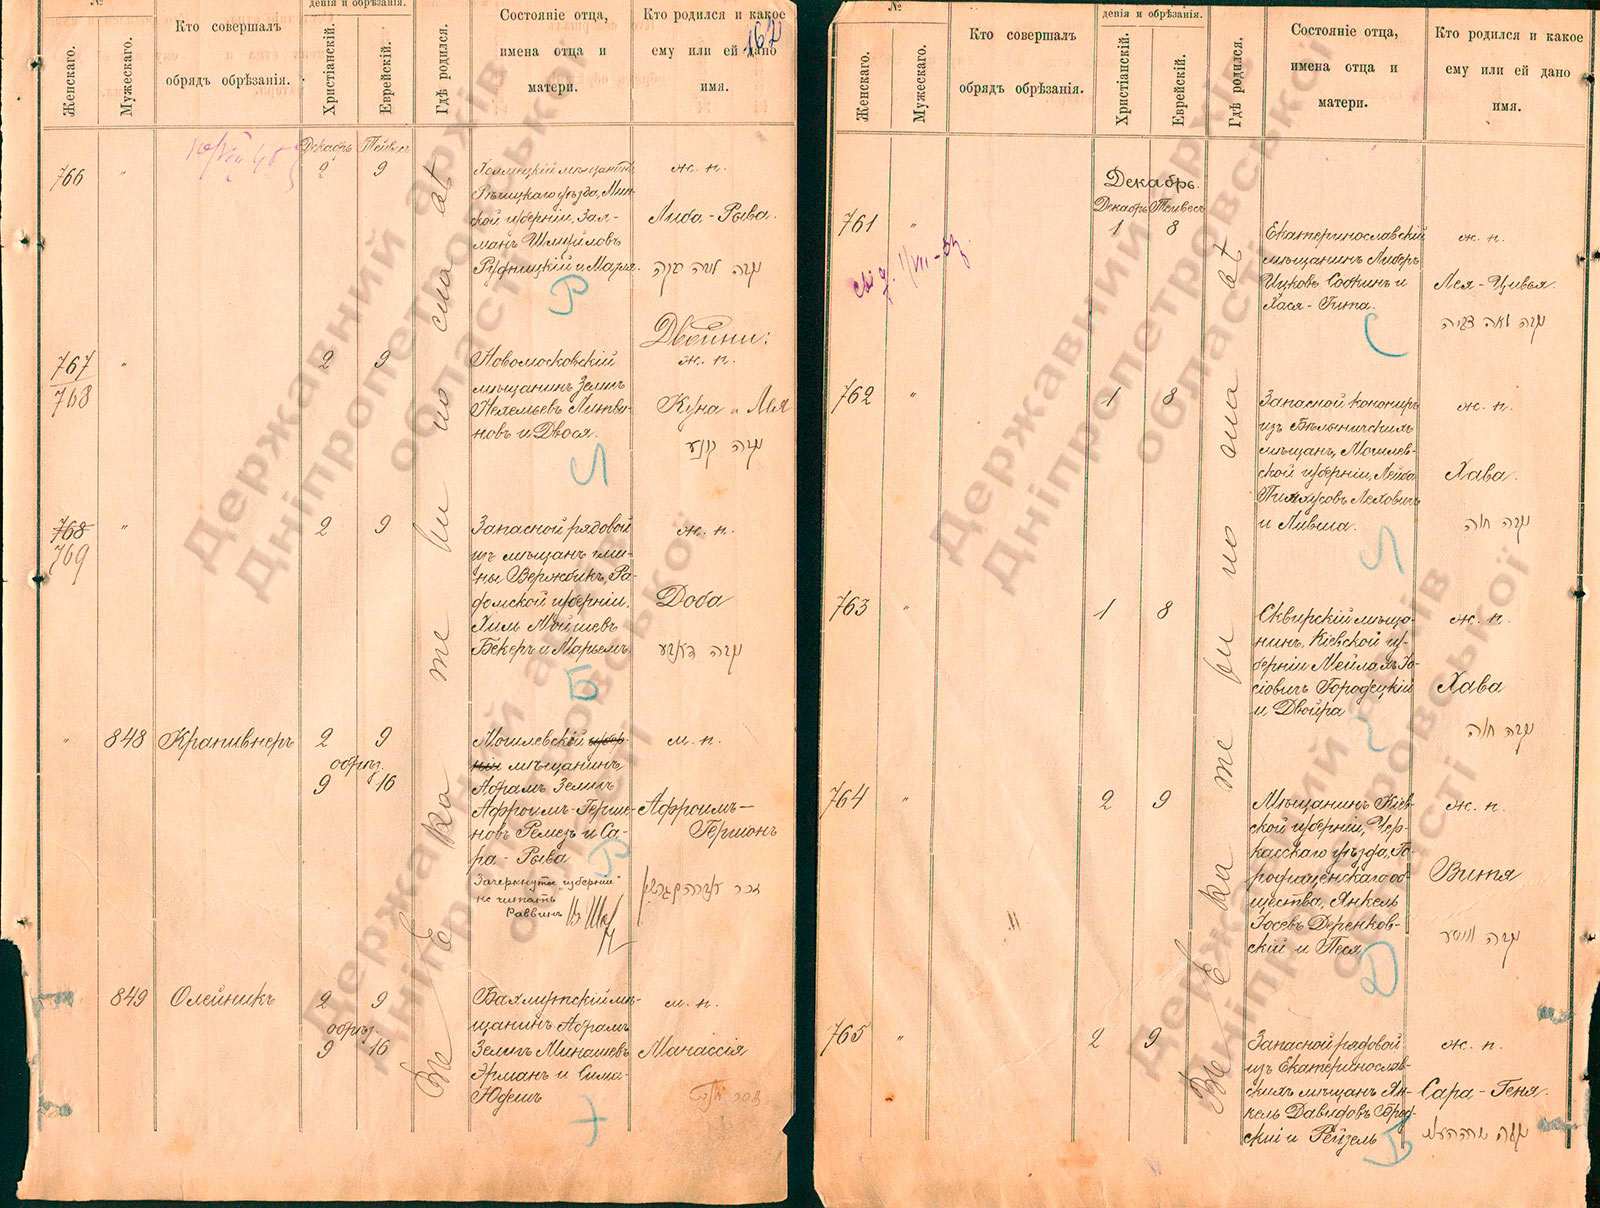 №
дения и обрѣзанія.
Женскаго.
Мужескаго.
Кто совершалъ
обрядъ обрѣзанія.
Христіанскій.
Еврейскій.
Гдѣ родился.
Состояніе отца,
имена отца и
матери.
Кто родился и какое
ему или ей дано
имя.
Декабрь
766
"
2
9
Рѣчицкаго уѣзда, Мин-
ской губерніи, Зал-
манъ Шмуйловъ
Рудницкій и Марья.
ж. п.
Либа - Рыва.
Двойни:
767
768
"
2
9
Новомосковскій
мѣщанинъ Зеликъ
новъ и Двося.
ж. п.
и Лея
768
769
"
2
9
Запасной рядовой
изъ мѣщанъ гми-
ны Вержбикъ, Ра-
домской губерніи,
Хилъ Мойшевъ
Бекеръ и Марьемъ.
ж. п.
Доба
"
848
Крапивнеръ
2
9
обрѣз.
9
16
Могилевскій губер
ніи мѣщанинъ
Абрамъ Зеликъ
Афроимъ-Гершо-
новъ Ремезъ и Са-
ра - Рыва
Зачеркнутое "губерніи"
не читать
Раввинъ
м. п.
Афроимъ —
Гершонъ
849
Олейникъ
2
9
обрѣз.
9
16
Бахмутскій мѣ-
щанинъ Абрамъ
Зеликъ Минашевъ
Эрманъ и Сима-
Юдесъ
м. п.
Манассія
Въ г. Екатеринославѣ
№
дения и обрѣзанія.
Женскаго.
Мужескаго.
Кто совершалъ
обрядъ обрѣзанія.
Христіанскій.
Еврейскій.
Гдѣ родился.
Состояніе отца,
имена отца и
матери.
Кто родился и какое
ему или ей дано
имя.
Декабрь.
Декабрь Тейвесъ
761
"
1
8
Екатеринославскій
мѣщанинъ Либеръ
Ицковъ Соткинъ и
Хася - Гита.
ж. п.
Лея - Цивья.
נקבה לאה צביה
762
"
1
8
Запасной канониръ
мѣщанъ, Могилев-
ской губерніи, Лейба
и Лившa.
ж. п.
Хава.
נקבה חוה
763
"
1
8
Сквирскій мѣща-
нинъ, Кіевской гу-
берніи Мейлахъ Іо-
сіовичъ Городецкій
и Двойра
ж. п.
Хава
נקבה חוה
764
"
2
9
Мѣщанинъ Кіев-
ской губерніи, Чер-
касскаго уѣзда, Го-
родищенскаго об-
щества, Янкель
Іосевъ Деренков-
скій и Песя
ж. п.
Витя
765
"
2
9
Запасной рядовой
изъ Екатеринослав-
скихъ мѣщанъ Ян-
кель Давидовъ Брод-
скій и Рейзель
ж. п.
Сара - Геня.
Въ г. Екатеринославѣ
Державний архів
Дніпропетровської
області